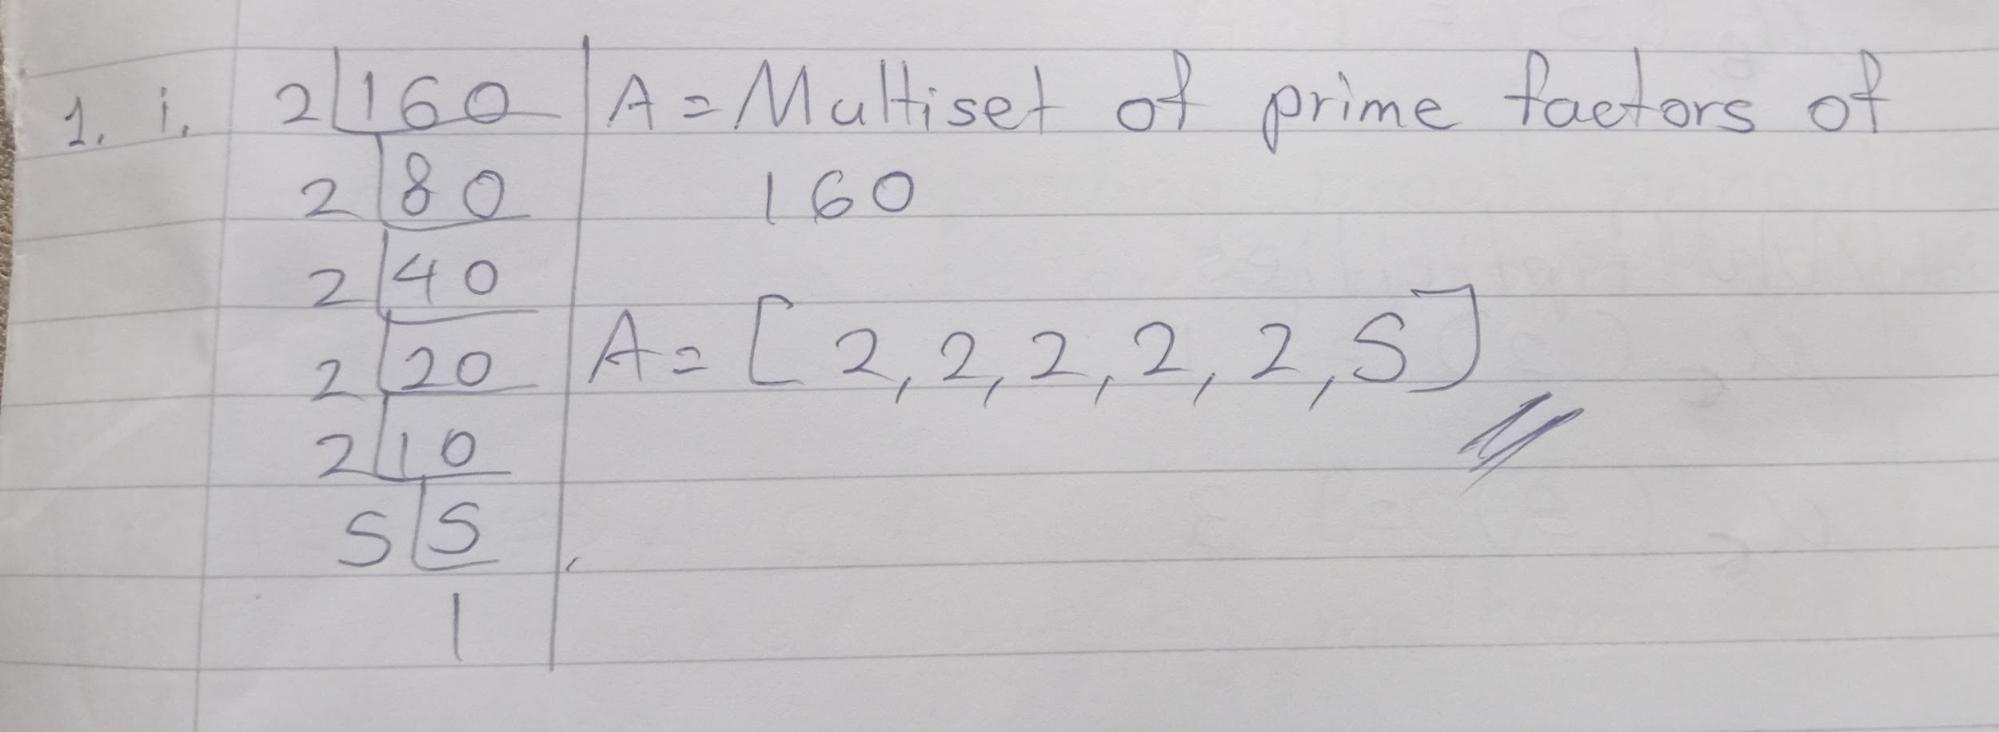 1. i.
2 | 160
2 | 80
2 | 40
2 | 20
2 | 10
5 | 5
1
A = Multiset of prime factors of
160
A = [ 2, 2, 2, 2, 2, 5 ]